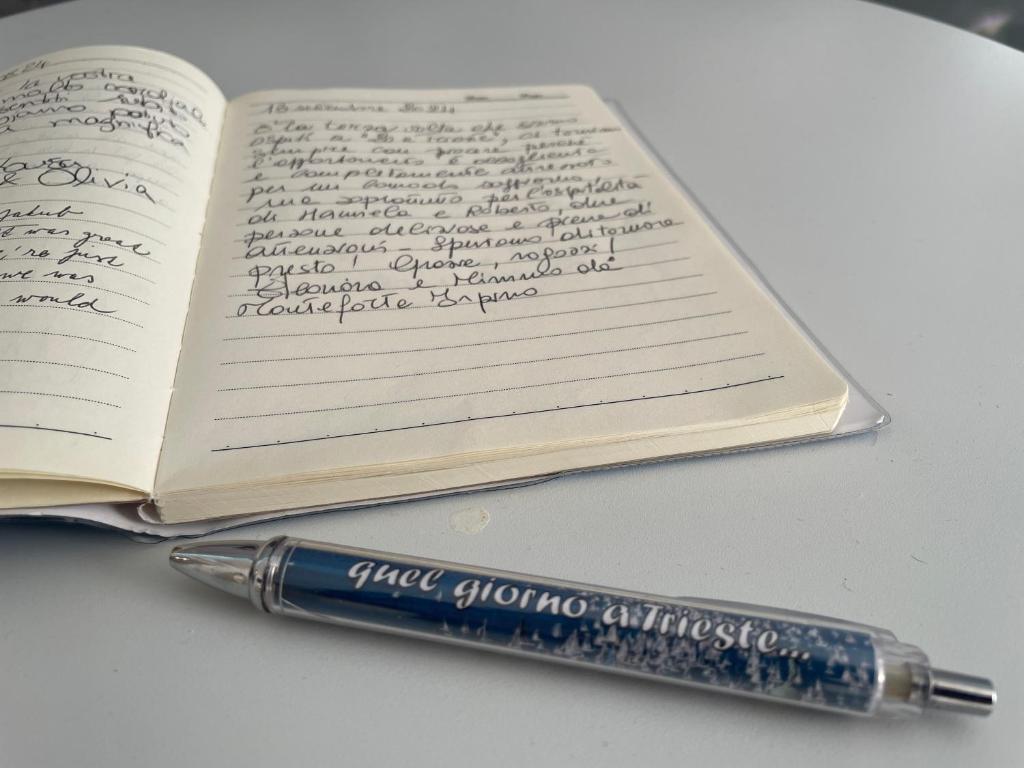 24
la vostra
molto cordiale
sentiti subito
magnifica
Olivia
Jakub
it was great
're just
we was
would
13 settembre 2024
È la terza volta che siamo
ospiti a "Le torri", ci torniamo
sempre con piacere perché
l'appartamento è accogliente
e completamente attrezzato
per un comodo soggiorno,
ma soprattutto per l'ospitalità
di Manuela e Roberto, due
persone deliziose e piene di
attenzioni - Speriamo di tornare
presto! Grazie, ragazzi!
Eleonora e Mimmo da
Monteforte Irpino
quel giorno a Trieste...